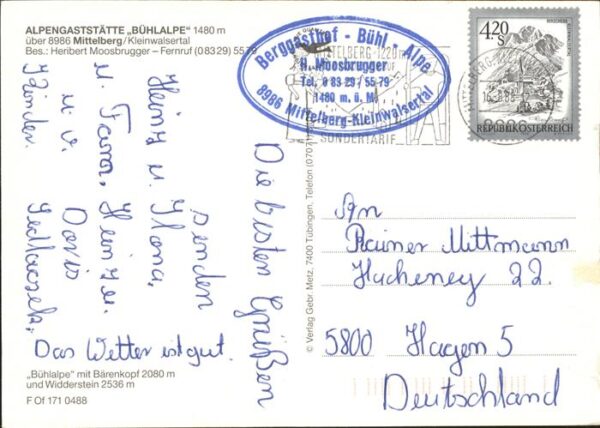 ALPENGASTSTÄTTE „BÜHLALPE" 1480 m
über 8986 Mittelberg/Kleinwalsertal
Bes.: Heribert Moosbrugger – Fernruf (08329) 5579
Berggasthof - Bühl - Alpe
H. Moosbrugger
Tel. 0 83 29 / 55 79
1480 m. ü. M.
8986 Mittelberg-Kleinwalsertal
MITTELBERG 1220m
SONDERTARIF
4.20
S
REPUBLIK ÖSTERREICH
Die besten Grüßen
senden
Heinz u. Ilona,
u. Fam. Heinz u.
u. v. Doris
Kinder. Sedlaczek.
Das Wetter ist gut.
An
Rainer Mittmann
Hacheney 22.
5800 Hagen 5
Deutschland
© Verlag Gebr. Metz, 7400 Tübingen, Telefon (0707
„Bühlalpe" mit Bärenkopf 2080 m
und Widderstein 2536 m
F Of 171 0488